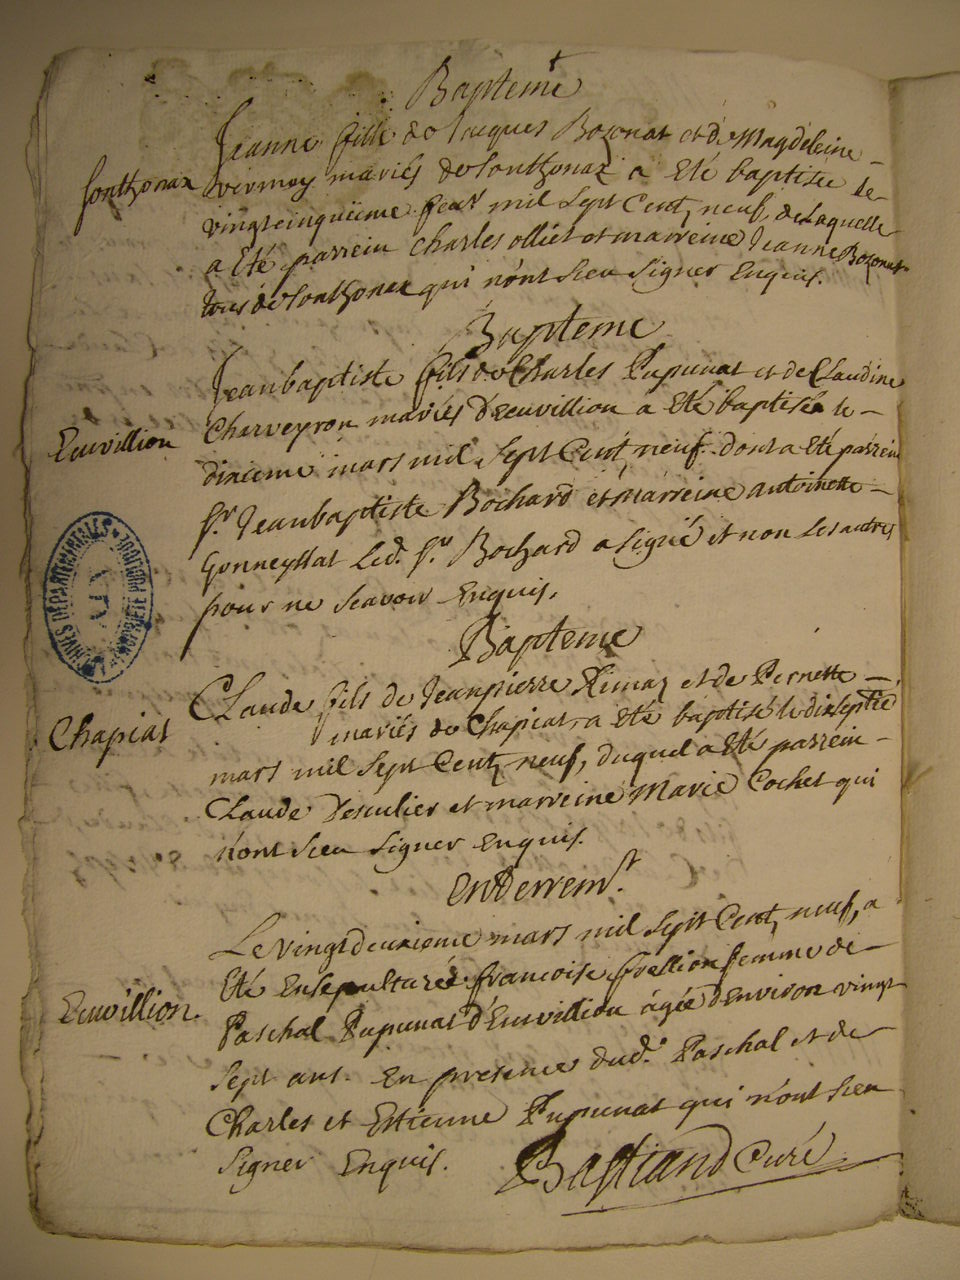 Bapteme
Jeanne fille de Jacques Bozonat et de Magdeleine
Sonthonax
vermey mariés de Sonthonax a Eté baptisée le
vingtcinquieme feuv mil Sept Cent neuf, de Laquelle
a Eté parrein Charles ollier et marreine Jeanne Bozonat
tous de Sonthonax qui n'ont sceu signer Enquis.
Bapteme
Jeanbaptiste fils de Charles Pupunat et de Claudine
Charveyron mariés d'Ecuvillion a Eté baptisé le
Ecuvillion
dixieme mars mil Sept Cent neuf. dont a Eté parrein
Sr. Jeanbaptiste Bochard et marreine antoinette
Gonneyssat Led. Sr. Bochard a signé et non Les autres
pour ne sceavoir Enquis.
Bapteme
Claude fils de Jeanpierre et de Pernette
Chapiat
mariés de Chapiat a Eté baptisé le dixseptie
mars mil Sept Cent neuf, duquel a Eté parrein
Claude et marreine Marie Cochet qui
n'ont sceu signer Enquis.
Enterremt.
Le vingtdeuxieme mars mil Sept Cent neuf, a
Eté Ensepulturée francoise frellion femme de
Ecuvillion.
Paschal Pupunat d'Ecuvillion âgée d'Environ vingt
Sept ans. En presence dud. Paschal et de
Charles et Estienne Pupunat qui n'ont sceu
Signer Enquis. Bastiand Curé